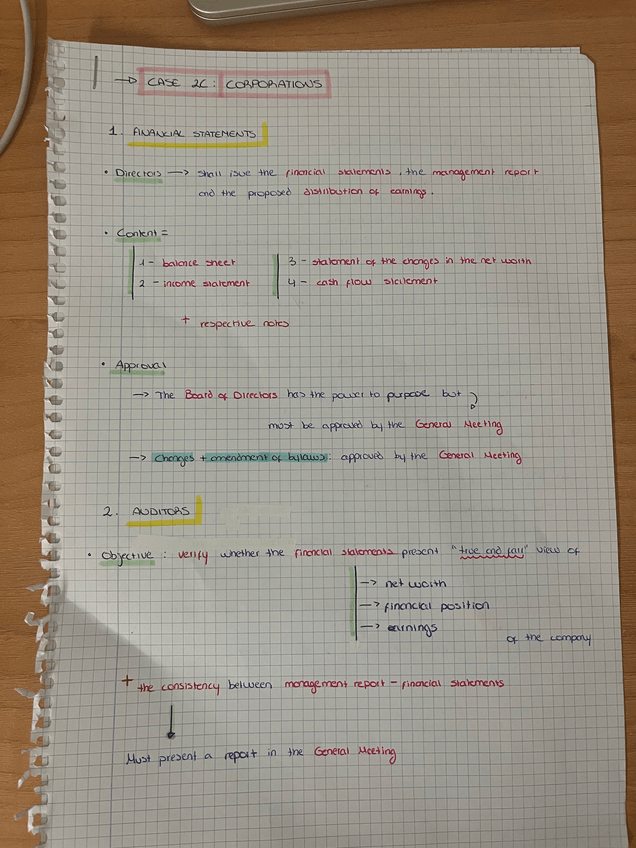 → CASE 2C: CORPORATIONS
1. FINANCIAL STATEMENTS
• Directors → shall issue the financial statements, the management report
and the proposed distribution of earnings.
• Content =
1- balance sheet
2 - income statement
3 - statement of the changes in the net worth
4 - cash flow statement
+ respective notes
• Approval
→ The Board of Directors has the power to purpose but
must be approved by the General Meeting
→ Changes + amendment of bylaws: approved by the General Meeting
2. AUDITORS
• Objective : verify whether the financial statements present "true and fair" view of
→ net worth
→ financial position
→ earnings
of the company
+ the consistency between management report - financial statements
Must present a report in the General Meeting